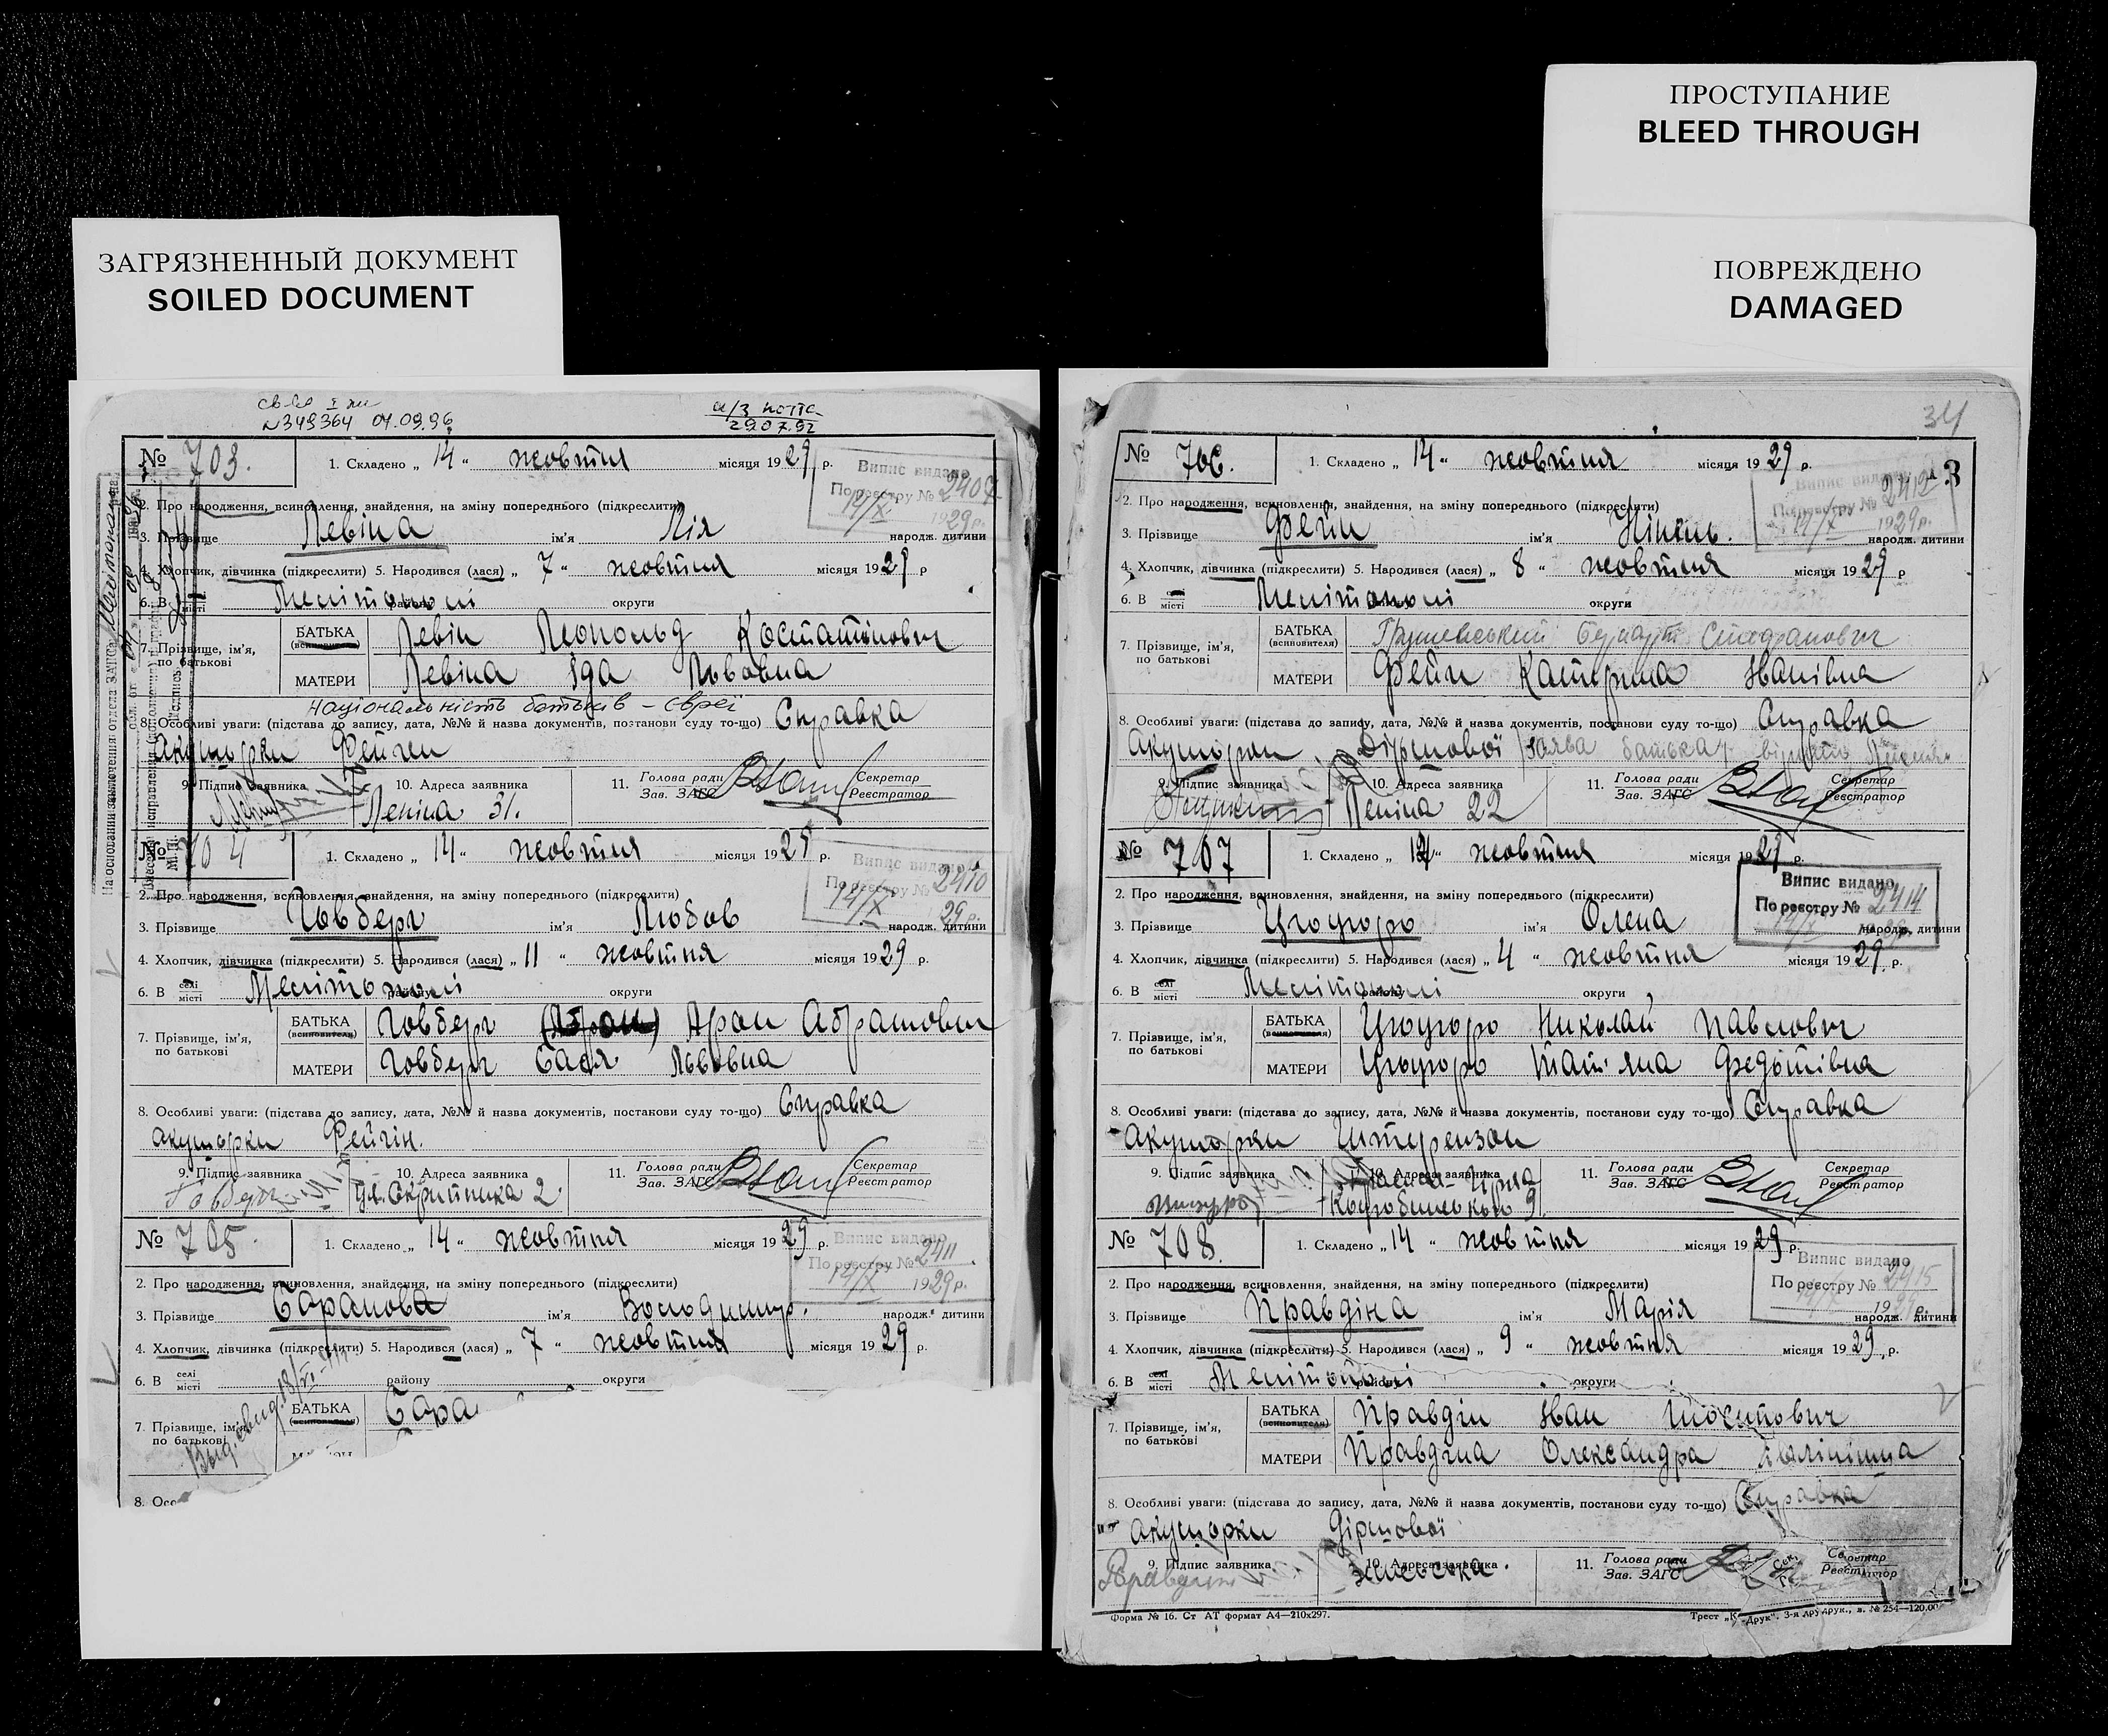 ПРОСТУПАНИЕ
BLEED THROUGH
ПОВРЕЖДЕНО
DAMAGED
ЗАГРЯЗНЕННЫЙ ДОКУМЕНТ
SOILED DOCUMENT
№349364 04.09.96
29.07.92
№ 703. 1. Складено „ 14 “ жовтня місяця 1929 р.
Випис видано
По реєстру №
14/X 1929 р.
2. Про народження, всиновлення, знайдення, на зміну попереднього (підкреслити)
3. Прізвище Левіна ім'я Лія народж. дитини
4. Хлопчик, дівчинка (підкреслити) 5. Народився (лася) „ 7 “ жовтня місяця 1929 р
6. В місті Мелітополі району округи
7. Прізвище, ім'я, по батькові
БАТЬКА (всиновителя) Левін Леопольд Костатінович
МАТЕРИ Левіна Іда Львовна
Національність батьків – євреї
8. Особливі уваги: (підстава до запису, дата, №№ й назва документів, постанови суду то-що) Справка
Акушорки Фейген
9. Підпис заявника 10. Адреса заявника 11. Голова ради Зав. ЗАГС Секретар Реєстратор
Леніна 31.
№ 704 1. Складено „ 14 “ жовтня місяця 1929 р.
Випис видано
По реєстру № 2410
14/X 29 р.
2. Про народження, всиновлення, знайдення, на зміну попереднього (підкреслити)
3. Прізвище Говберг ім'я Любов народж. дитини
4. Хлопчик, дівчинка (підкреслити) 5. Народився (лася) „ 11 “ жовтня місяця 1929 р.
6. В селі місті Мелітополі району округи
7. Прізвище, ім'я, по батькові
БАТЬКА (всиновителя) Говберг Арон Абрамович
МАТЕРИ Говберг Сася Львовна
8. Особливі уваги: (підстава до запису, дата, №№ й назва документів, постанови суду то-що) Справка
акушорки Фейгін.
9. Підпис заявника 10. Адреса заявника 11. Голова ради Зав. ЗАГС Секретар Реєстратор
Говберг ул. Скрипника 2
№ 705. 1. Складено „ 14 “ жовтня місяця 1929 р.
Випис видано
По реєстру № 2411
14/X 1929 р.
2. Про народження, всиновлення, знайдення, на зміну попереднього (підкреслити)
3. Прізвище Баранова ім'я Володимир. народж. дитини
4. Хлопчик, дівчинка (підкреслити) 5. Народився (лася) „ 7 “ жовтня місяця 1929 р.
6. В селі місті району округи
7. Прізвище, ім'я, по батькові
БАТЬКА (всиновителя) Бара
8. Осо
34
№ 706. 1. Складено „ 14 “ жовтня місяця 1929 р.
Випис видано
По реєстру № 2412
14/X 1929 р.
2. Про народження, всиновлення, знайдення, на зміну попереднього (підкреслити)
3. Прізвище Фейн ім'я Нінель. народж. дитини
4. Хлопчик, дівчинка (підкреслити) 5. Народився (лася) „ 8 “ жовтня місяця 1929 р
6. В місті Мелітополі округи
7. Прізвище, ім'я, по батькові
БАТЬКА (всиновителя) Грушевський
МАТЕРИ Фейн Катерина Іванівна
8. Особливі уваги: (підстава до запису, дата, №№ й назва документів, постанови суду то-що) Справка
Акушорки Діршової заява батька
9. Підпис заявника 10. Адреса заявника 11. Голова ради Зав. ЗАГС Секретар Реєстратор
Леніна 22
№ 707 1. Складено „ 14 “ жовтня місяця 1929 р.
Випис видано
По реєстру № 2414
2. Про народження, всиновлення, знайдення, на зміну попереднього (підкреслити)
3. Прізвище Цюцюро ім'я Олена народж. дитини
4. Хлопчик, дівчинка (підкреслити) 5. Народився (лася) „ 4 “ жовтня місяця 1929 р.
6. В селі місті Мелітополі району округи
7. Прізвище, ім'я, по батькові
БАТЬКА (всиновителя) Цюцюро Николай Павлович
МАТЕРИ Цюцюро Тат'яна Федотівна
8. Особливі уваги: (підстава до запису, дата, №№ й назва документів, постанови суду то-що) Справка
Акушорки Штерензон
9. Підпис заявника 10. Адреса заявника 11. Голова ради Зав. ЗАГС Секретар Реєстратор
Коцюбинського 9.
№ 708. 1. Складено „ 14 “ жовтня місяця 1929 р.
Випис видано
По реєстру № 2415
2. Про народження, всиновлення, знайдення, на зміну попереднього (підкреслити)
3. Прізвище Правдіна ім'я Марія народж. дитини
4. Хлопчик, дівчинка (підкреслити) 5. Народився (лася) „ 9 “ жовтня місяця 1929 р.
6. В селі місті Мелітополі району округи
7. Прізвище, ім'я, по батькові
БАТЬКА (всиновителя) Правдін Іван Йосипович
МАТЕРИ Правдіна Олександра
8. Особливі уваги: (підстава до запису, дата, №№ й назва документів, постанови суду то-що) Справка
Акушорки Діршової
9. Підпис заявника 10. Адреса заявника 11. Голова ради Зав. ЗАГС Секретар Реєстратор
Форма № 16. Ст АТ формат А4—210х297.